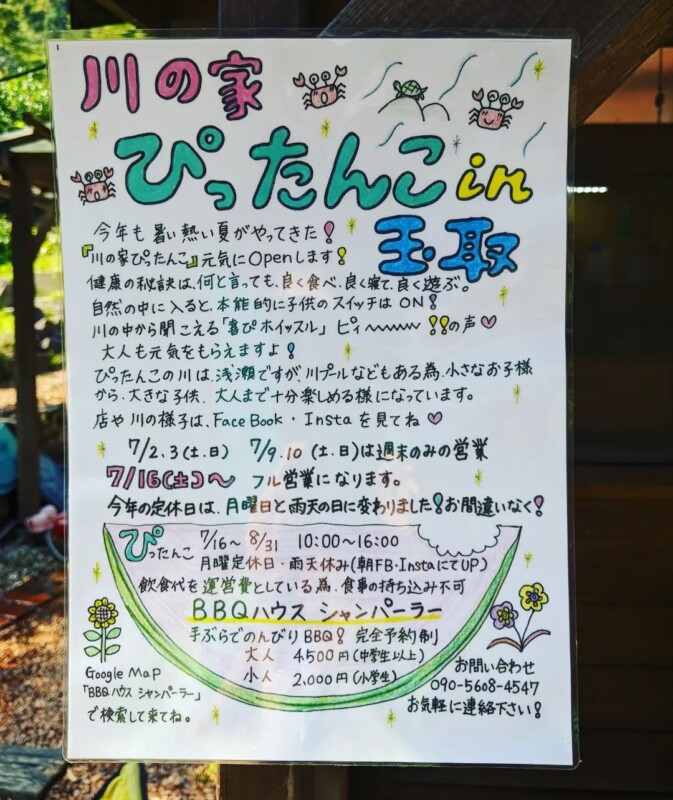 川の家
ぴったんこ in
玉取
今年も暑い熱い夏がやってきた!
『川の家ぴったんこ』元気にOpenします!
健康の秘訣は、何と言っても、良く食べ、良く寝て、良く遊ぶ。
自然の中に入ると、本能的に子供のスイッチはON!
川の中から聞こえる「喜びホイッスル」ピィ〜〜〜〜!!の声♡
大人も元気をもらえますよ!
ぴったんこの川は、浅瀬ですが、川プールなどもある為、小さなお子様
から、大きな子供、大人まで十分楽しめる様になっています。
店や川の様子は、Face Book・Instaを見てね♡
7/2.3(土.日) 7/9.10(土.日)は週末のみの営業
7/16(土)〜 フル営業になります。
今年の定休日は、月曜日と雨天の日に変わりました!お間違いなく!
ぴったんこ 7/16〜8/31 10:00〜16:00
月曜定休日・雨天休み(朝FB・InstaにてUP)
飲食代を運営費としている為、食事の持ち込み不可
BBQハウス シャンパーラー
手ぶらでのんびりBBQ! 完全予約制
大人 4,500円(中学生以上)
小人 2,000円(小学生)
Google Map
「BBQハウス シャンパーラー」
で検索して来てね。
お問い合わせ
090-5608-4547
お気軽に連絡下さい!